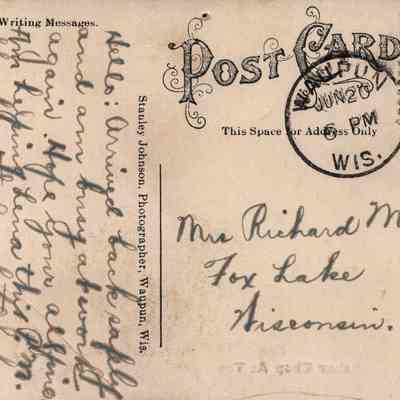 Writing Messages.
POST CARD
WAUPUN
JUN 20
6 PM
WIS.
This Space for Address Only
Hello: Arrived back safely
and am busy at work
again. Hope your alpine
Am helping Lena this P.M.
Stanley Johnson, Photographer, Waupun, Wis.
Mrs Richard M
Fox Lake
Wisconsin.